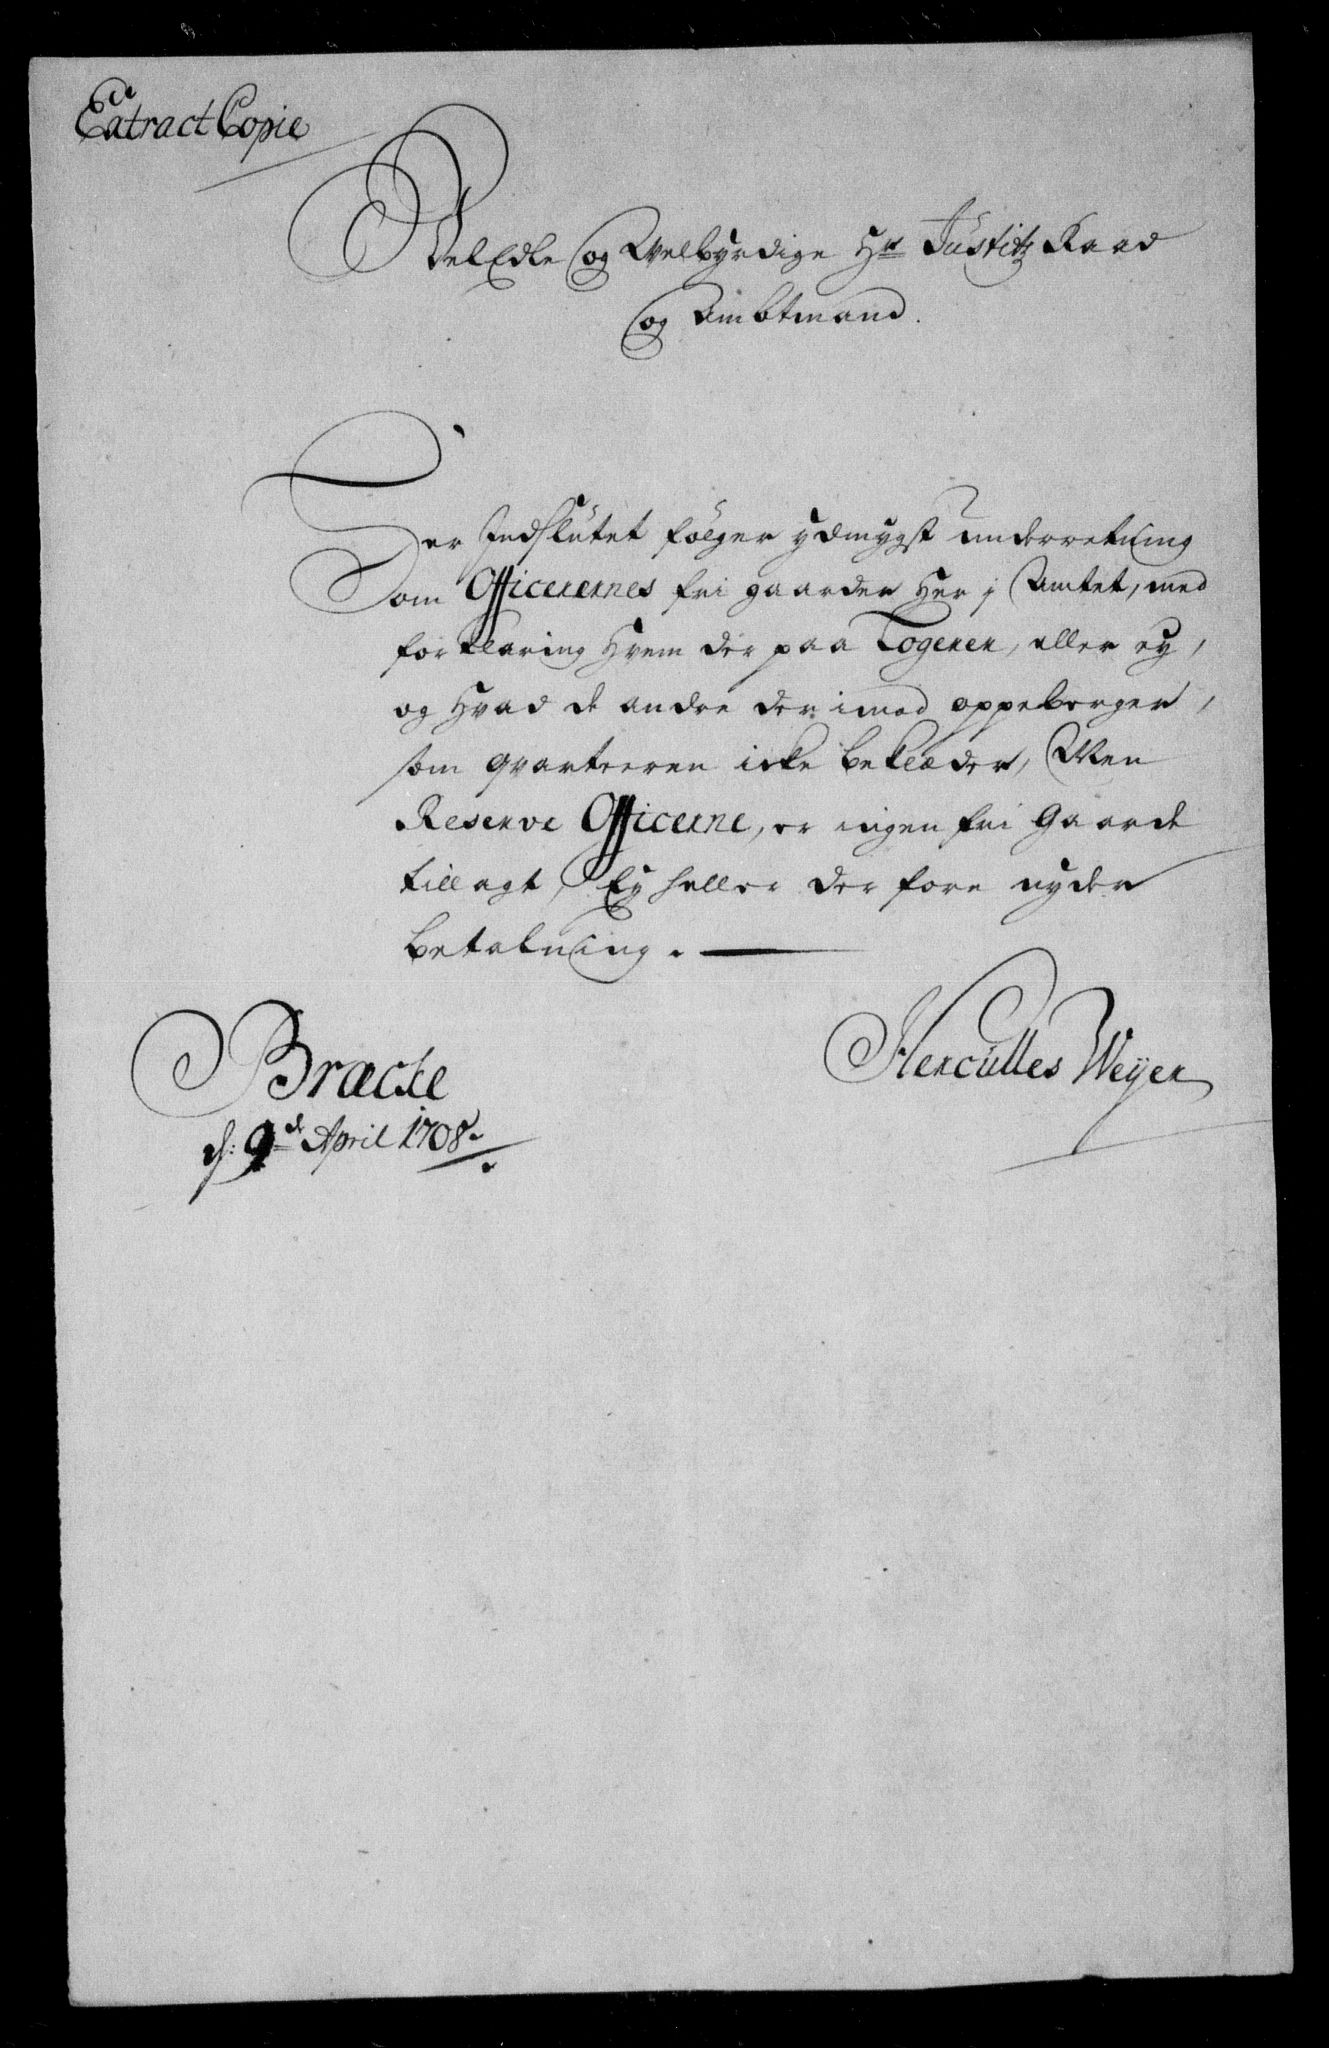 Extract Copie
VelEdle og Welbyrdige Hr Justitz Raad
og Ambtmand.
Her Indslutet følger ydmygst underretning
om Officerernes fri gaarder her j Amtet, med
forklaring hvem der paa Logerer, eller ey,
og hvad de andre der imod oppeberger,
som qvarteeren icke beklæder, Men
Reserve Officerne, er ingen fri Gaarde
tillagt, Ey heller der fore nyder
betalning.
Bræcke
d: 9de April 1708.
Hercules Weyer